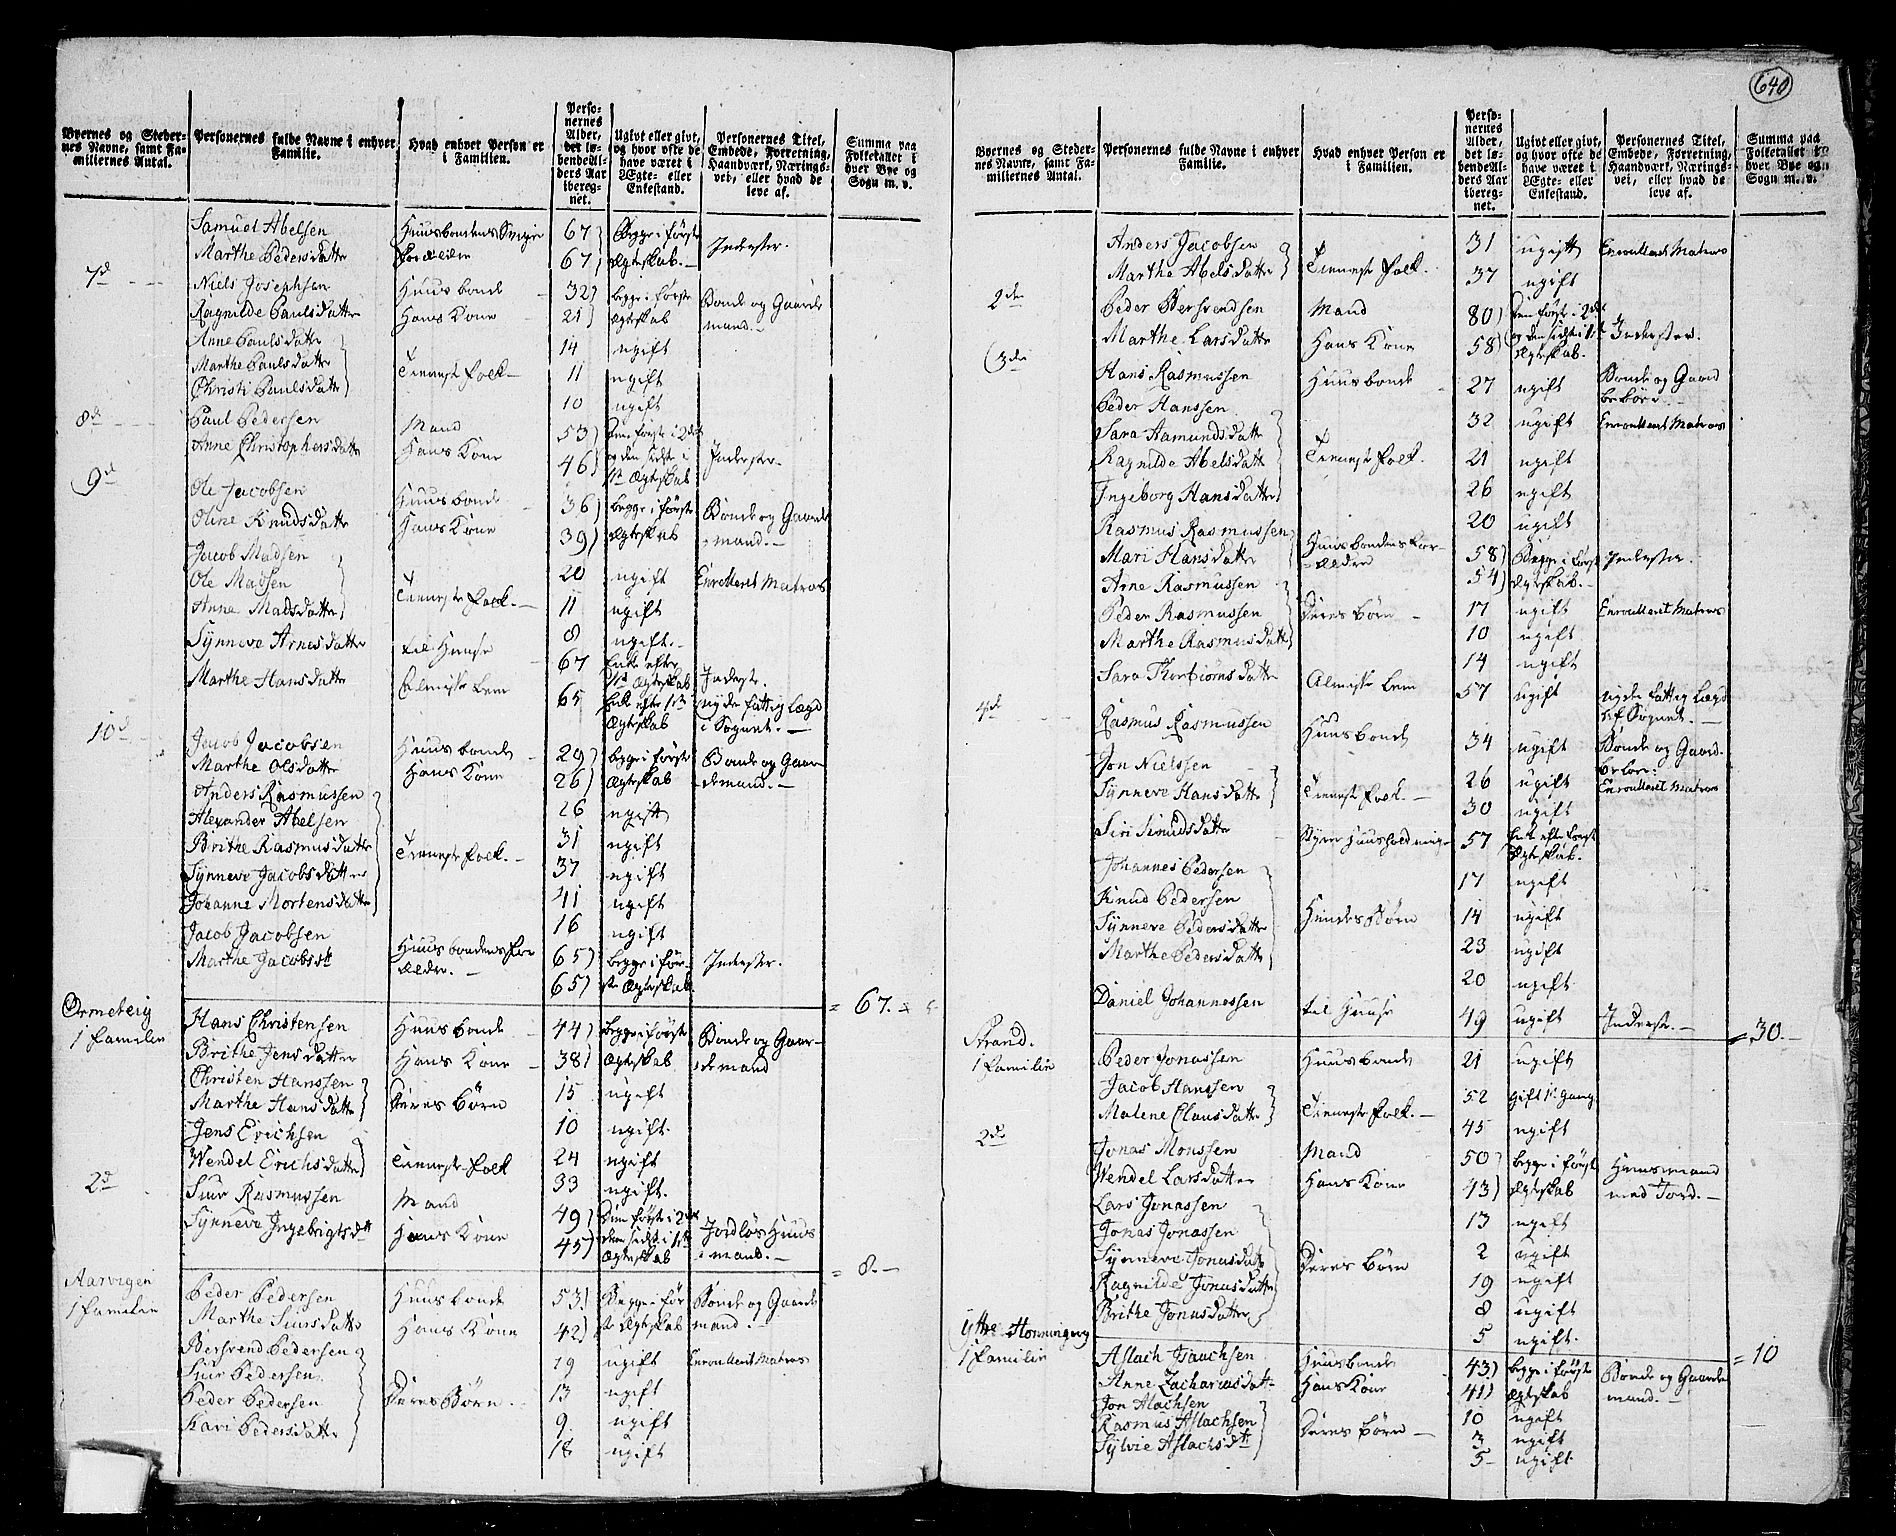 640
Byernes og Steder-
nes Navne, samt Fa-
miliernes Antal.
Personernes fulde Navne i enhver
Familie.
Hvad enhver Person er
i Familien.
Perso-
nernes
Alder,
det lø-
bendeAl-
ders Aar
ibereg-
net.
Ugivt eller givt,
og hvor ofte de
have været i
Ægte- eller
Enkestand.
Personernes Titel,
Embede, Forretning,
Haandværk, Nærings-
vei, eller hvad de
leve af.
Summa paa
Folketallet i
hver Bye og
Sogn m. v.
Samuel Abelsen Huusbondens Sviger 67 Begge i første Inderster.
Marthe Pedersdatter Forældre 67 Ægteskab.
7de Niels Josephsen Huusbonde 32 begge i første Bonde og Gaard
Ragnilde Paulsdatter Hans Kone 21 Ægteskab mand.
Anne Paulsdatter 14 ugift
Marthe Paulsdatter Tienneste folk 11 ugift
Christi Paulsdatter 10 ugift
8de Paul Pedersen Mand 53 Den første i 2det
Anne Christophersdatter Hans Kone 46 og den sidste i Inderster.
1ste Ægteskab
9de Ole Jacobsen Huusbonde 36 begge i første Bonde og Gaard
Oline Knudsdatter Hans Kone 39 Ægteskab mand.
Jacob Madsen 20 ugift Enrolleret Matros
Ole Madsen Tienneste folk. 11 ugift
Anne Madsdatter 8 ugift.
Synneve Arnesdatter til Huuse 67 Enke efter
1ste Ægteskab Inderst.
Marthe Hansdatter Almisse Lem 65 Enke efter 1ste nyde fattig Lægd
Ægteskab i Sognet.
10de Jacob Jacobsen Huusbonde 29 begge i første Bonde og Gaar
Marthe Olsdatter Hans Kone 26 Ægteskab demand.
Anders Rasmussen 26 ugift
Alexander Abelsen 31 ugift
Brithe Rasmusdatter Tienneste folk. 37 ugift
Synneve Jacobsdatter 41 ugift
Johanne Mortensdatter 16 ugift
Jacob Jacobsen Huusbondens For 65 begge i før- Inderster.
Marthe Jacobsdt ældre. 65 ste Ægteskab.
= 67.
Ormeberg Hans Christensen Huusbonde 44 begge i første Bonde og Gaar-
1 familie Brithe Jensdatter Hans Kone 38 Ægteskab demand
Christen Hanssen Deres Børn 15 ugift
Marthe Hansdatter 10 ugift.
Jens Erichsen Tienneste folk 24 ugift
Wendel Erichsdatter 33 ugift.
2de Siur Rasmussen Mand 49 Den første i 2det Jordløs Huus
Synneve Ingebrigtsdtt Hans Kone 45 den sidste i 1ste mand.
Ægteskab
= 8.
Aarvigen Peder Pedersen Huusbonde 53 Begge i før Bonde og Gaard
1 familie Marthe Siursdatter Hans Kone 42 ste Ægteskab mand.
Bersvend Pedersen 19 ugift Enrolleret Matros
Siur Pedersen 13 ugift
Peder Pedersen Deres Børn. 9 ugift
Kari Pedersdatter 18 ugift
Byernes og Steder-
nes Navne, samt Fa-
miliernes Antal.
Personernes fulde Navne i enhver
Familie.
Hvad enhver Person er
i Familien.
Perso-
nernes
Alder,
det lø-
bendeAl-
ders Aar
ibereg-
net.
Ugivt eller givt,
og hvor ofte de
have været i
Ægte- eller
Enkestand.
Personernes Titel,
Embede, Forretning,
Haandværk, Nærings-
vei, eller hvad de
leve af.
Summa paa
Folketallet i
hver Bye og
Sogn m. v.
Anders Jacobsen 31 ugift Enrolleret Matros
Marthe Abelsdatter Tienneste folk. 37 ugift
2den Peder Bersvendsen Mand 80 Den første i 2det
Marthe Larsdatter Hans Kone 58 og den sidste i 1ste Inderster.
Ægteskab.
3die Hans Rasmussen Huusbonde 27 ugift Bonde og Gaard
Peder Hanssen 32 ugift Enrolleret Matros
Sara Aamundsdatter 21 ugift
Ragnilde Abelsdatter Tienneste folk. 26 ugift
Ingeborg Hansdatter 20 ugift
Rasmus Rasmussen Huusbondens For- 58 Begge i først Inderster.
Mari Hansdatter ældre 54 Ægteskab.
Arne Rasmussen 17 ugift Enrolleret Matros
Peder Rasmussen Deres børn 10 ugift
Marthe Rasmusdatter 14 ugift
Sara Thorbiørnsdatter Almisse Lem 57 ugift nyde fattig Lægd
af Sognet.
4de Rasmus Rasmussen Huusbonde 34 ugift Bonde og Gaard
Jon Nielssen 26 ugift Enrolleret Matros
Synneve Hansdatter Tienneste folk. 30 ugift
Siri Simundsdatter Styrer Huusholdning 57 Enke efter første
Ægteskab.
Johannes Pedersen 17 ugift
Knud Pedersen 14 ugift
Synneve Pedersdatter Hendes Børn 23 ugift
Marthe Pedersdatter 20 ugift.
Daniel Johannessen til Huuse 49 ugift Inderst.
= 30.
Strand. Peder Jonassen Huusbonde 21 ugift
1 familie Jacob Hanssen 52 gift 1. Gang
Malene Clausdatter Tienneste folk. 45 ugift
2de Jonas Monssen Mand 50 begge i først Huusmand
Wendel Larsdatter Hans Kone 43 Ægteskab med Jord.
Lars Jonassen 13 ugift
Jonas Jonassen 2 ugift
Synneve Jonasdatter Deres børn 19 ugift
Ragnilde Jonasdatter 8 ugift
Brithe Jonasdatter 5 ugift.
= 10
Ytre Honningen Aslach Isachsen Huusbonde 43 begge i første Bonde og Gaard
1 familie Anne Zachariasdatter Hans Kone 41 Ægteskab mand.
Jon Aslachsen 10 ugift
Rasmus Aslachsen Deres børn 3 ugift
Sylvie Aslachsdtt 5 ugift.